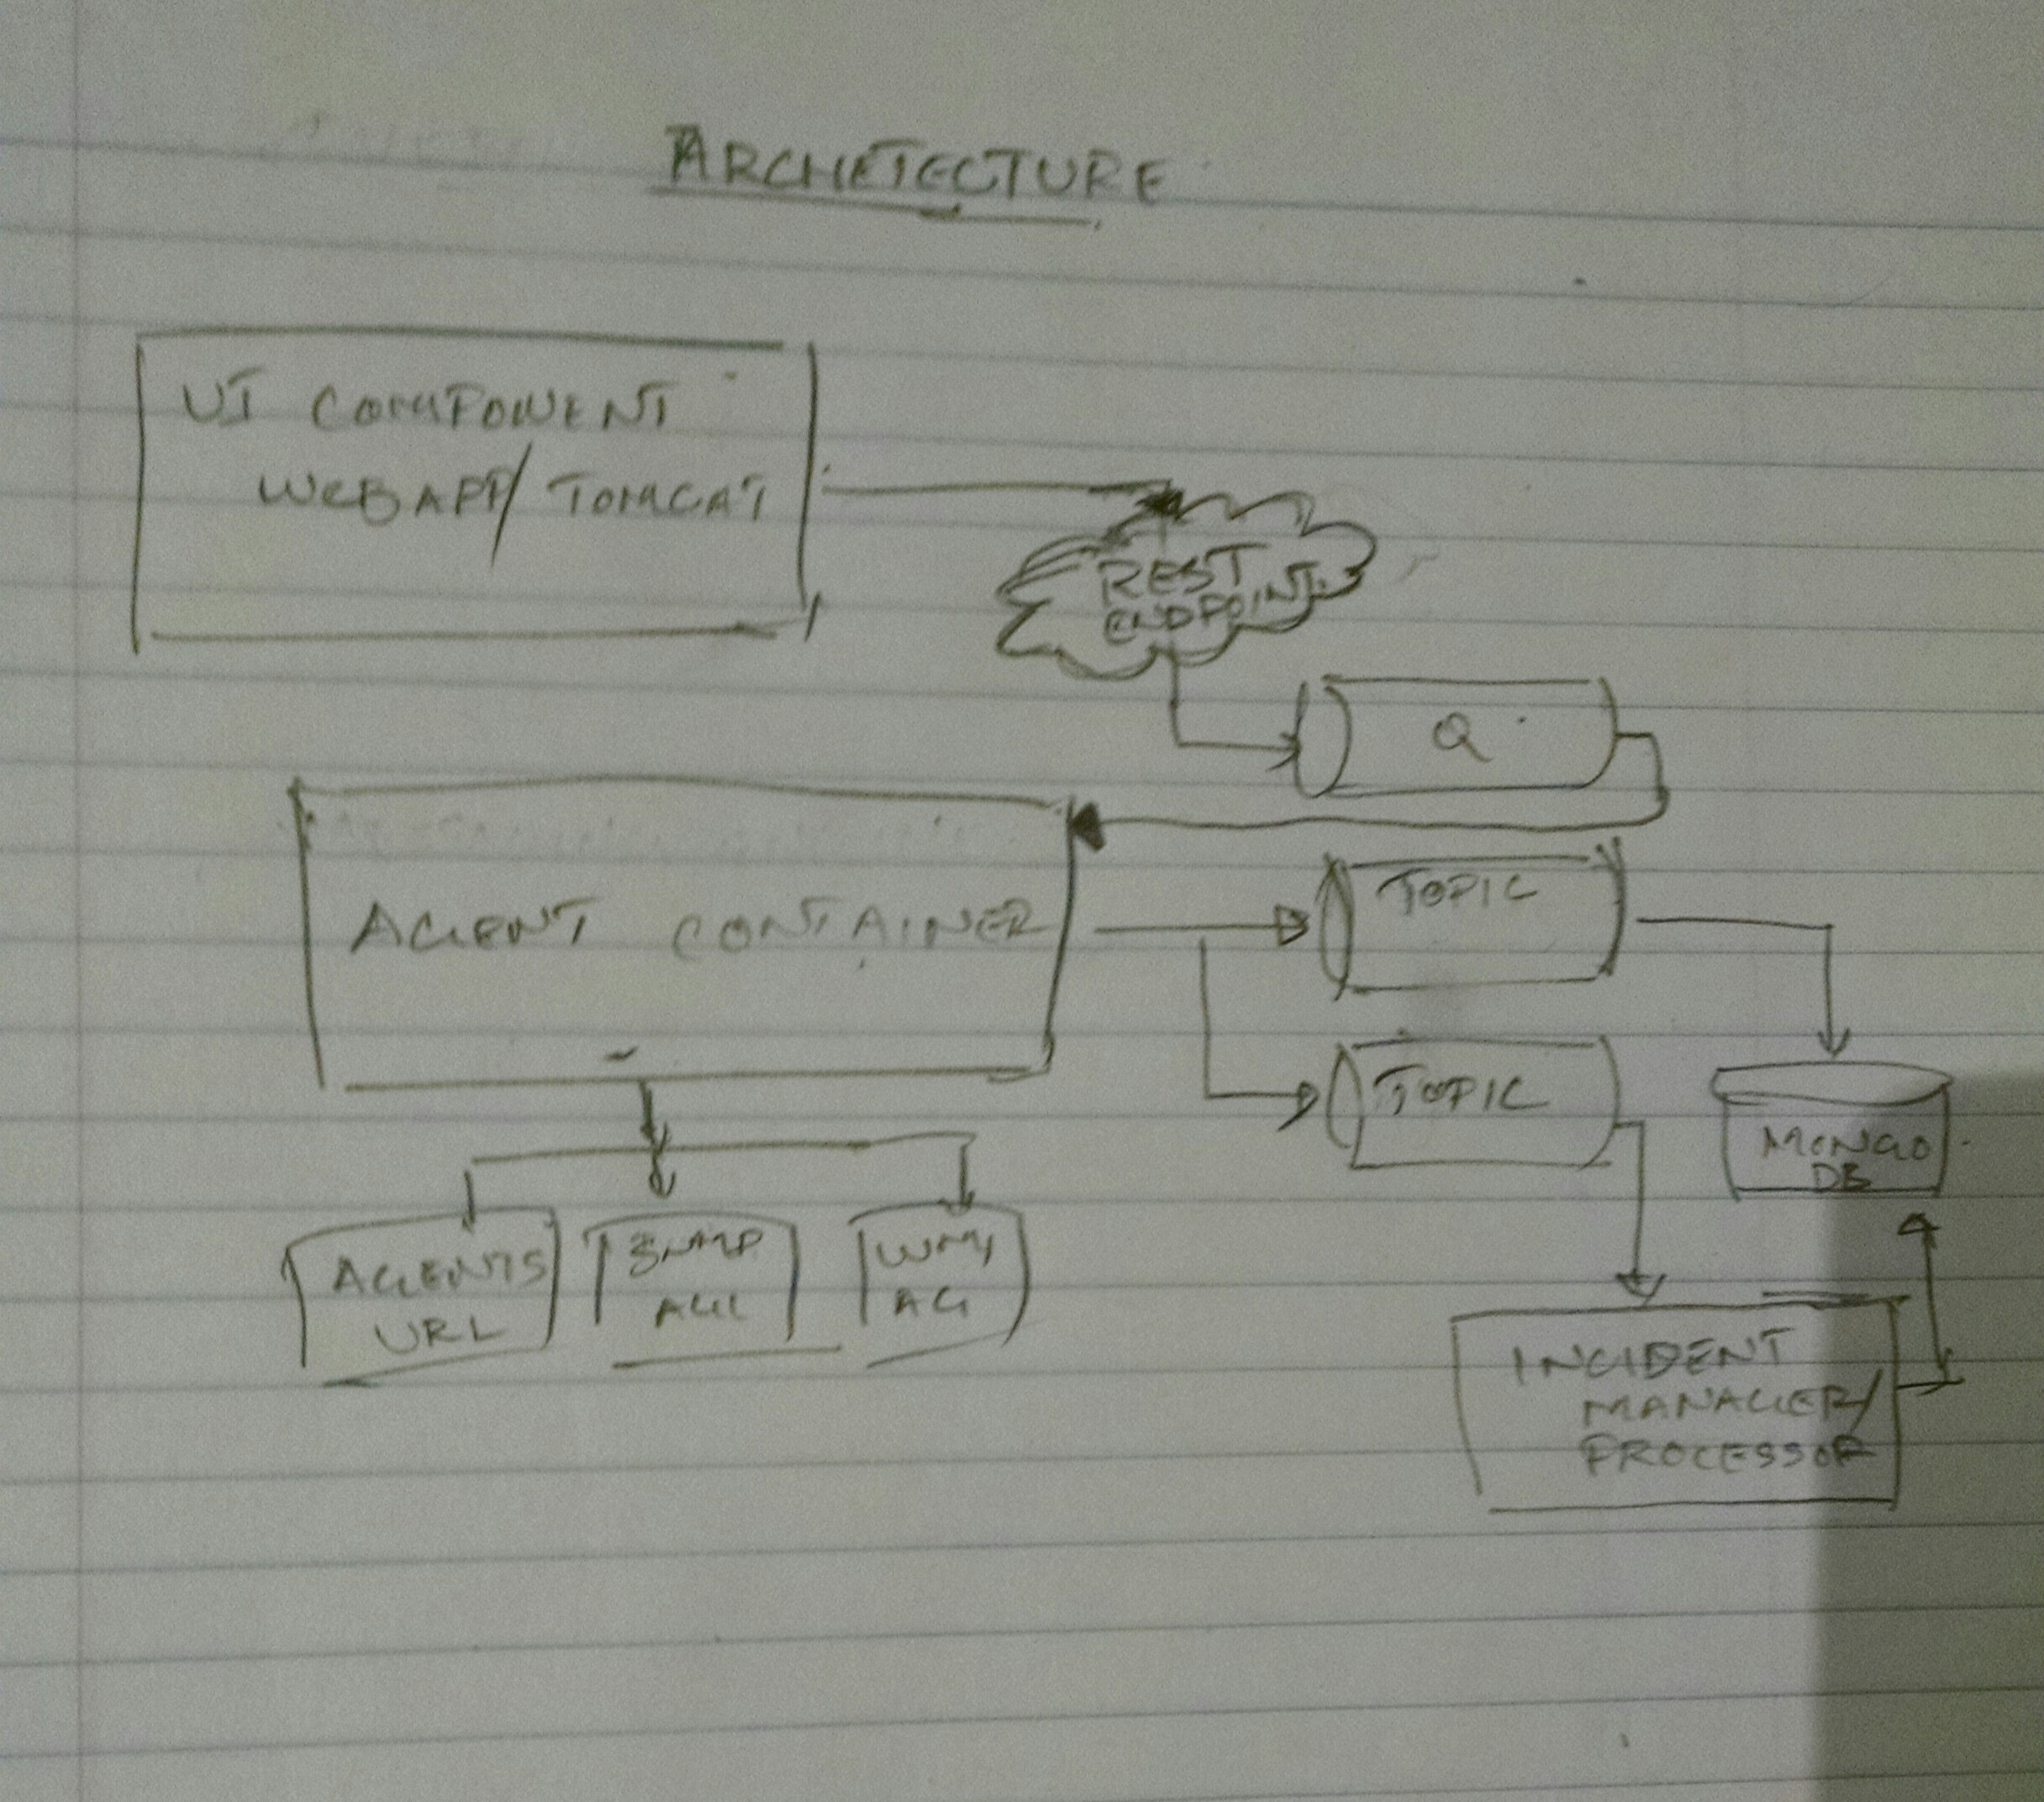 ARCHETECTURE
UI COMPONENT
WEBAPP/TOMCAT
REST
ENDPOINT
Q
AGENT CONTAINER
TOPIC
TOPIC
MONGO
DB
AGENTS
URL
SNMP
WMI
AG
INCIDENT
MANAGER/
PROCESSOR